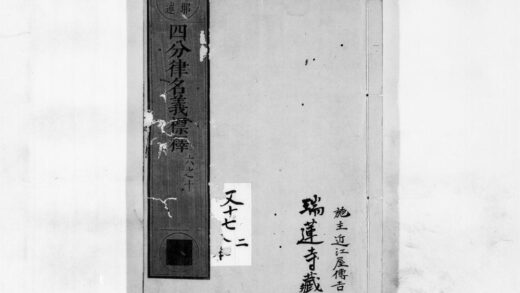 四分律名義標釋
六之十
又十七
二
施主近江屋傳吉
瑞蓮寺藏